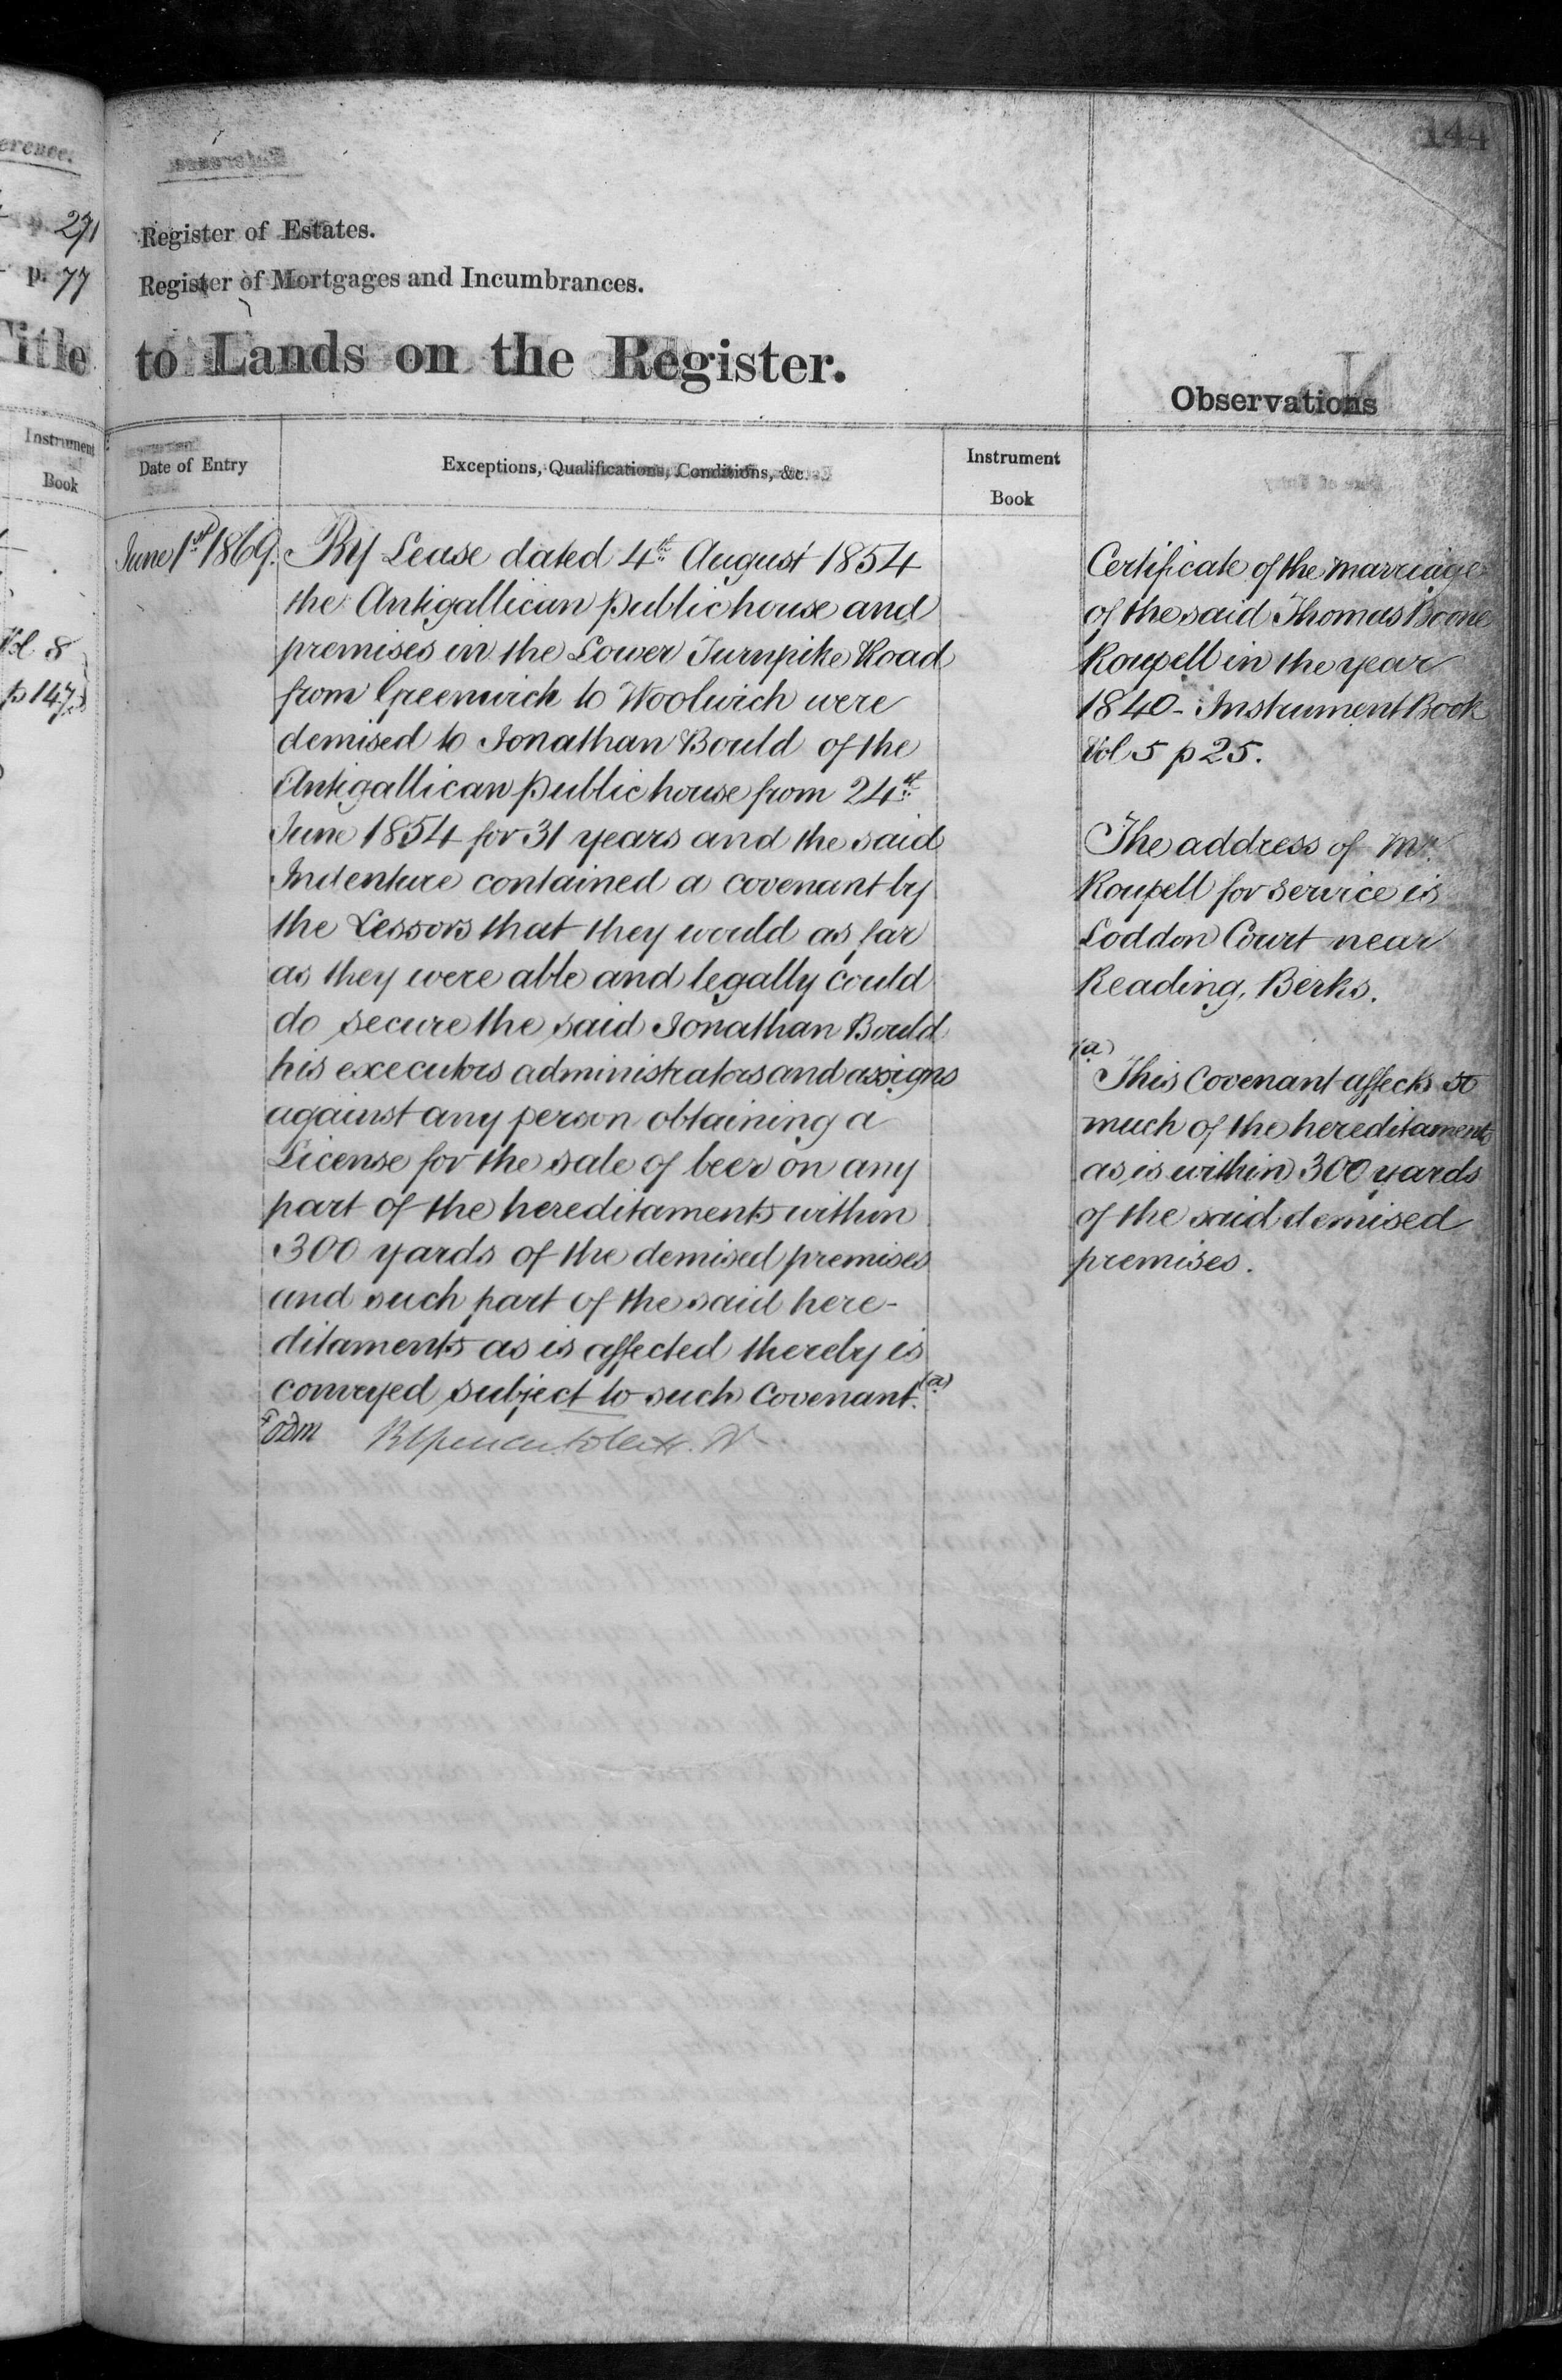 144
erence.
271
p. 77
Title
Instrument
Book
Vol 8
p 147
Register of Estates.
Register of Mortgages and Incumbrances.
to Lands on the Register.
Observations
Date of Entry
Exceptions, Qualifications, Conditions, &c.
Instrument
Book
June 1st 1869.
By Lease dated 4th August 1854
the Antigallican public house and
premises in the Lower Turnpike Road
from Greenwich to Woolwich were
demised to Jonathan Bould of the
Antigallican public house from 24st
June 1854 for 31 years and the said
Indenture contained a covenant by
the Lessors that they would as far
as they were able and legally could
do secure the said Jonathan Bould
his executors administrators and assigns
against any person obtaining a
License for the sale of beer on any
part of the hereditaments within
300 yards of the demised premises
and such part of the said here-
ditaments as is affected thereby is
conveyed subject to such Covenant. (a)
Certificate of the marriage
of the said Thomas Boone
Roupell in the year
1840 - Instrument Book
Vol 5 p 25.
The address of Mr.
Roupell for service is
Loddon Court near
Reading, Berks.
(a)
This Covenant affects so
much of the hereditaments
as is within 300 yards
of the said demised
premises.